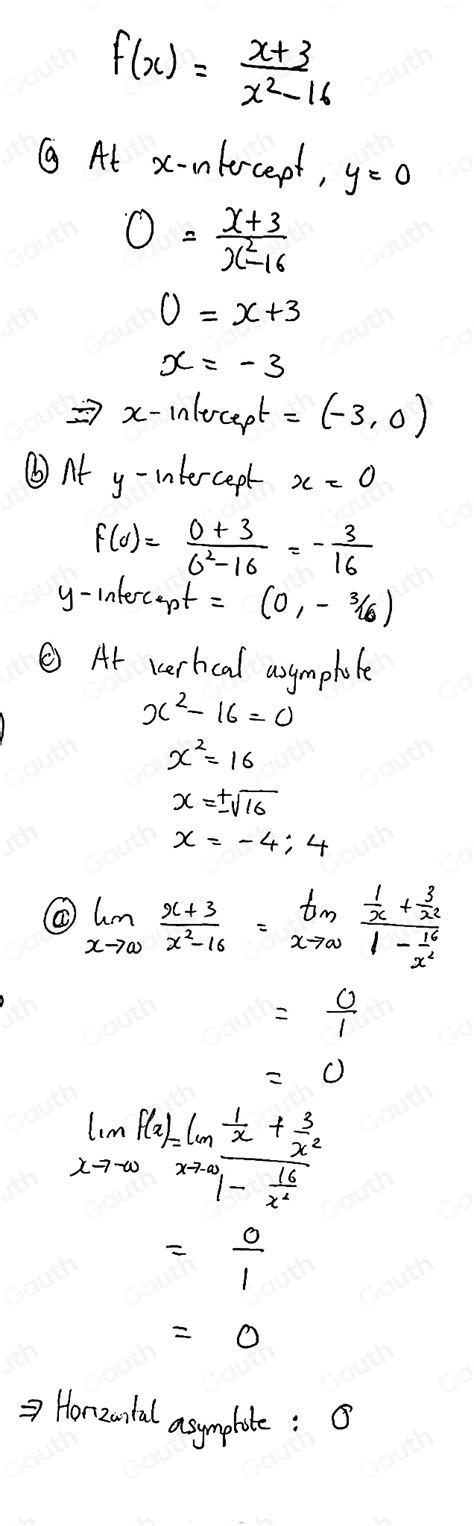 f(x) = (x+3)/(x²-16)
ⓐ At x-intercept, y = 0
0 = (x+3)/(x²-16)
0 = x+3
x = -3
⇒ x-intercept = (-3, 0)
ⓑ At y-intercept x = 0
f(0) = (0+3)/(0²-16) = -3/16
y-intercept = (0, - 3/16)
ⓒ At vertical asymptote
x² - 16 = 0
x² = 16
x = ±√16
x = -4; 4
ⓓ lim x→∞ (x+3)/(x²-16) = lim x→∞ (1/x + 3/x²)/(1 - 16/x²)
= 0/1
= 0
lim x→-∞ f(x) = lim x→-∞ (1/x + 3/x²)/(1 - 16/x²)
= 0/1
= 0
⇒ Horizontal asymptote : 0
Gauth